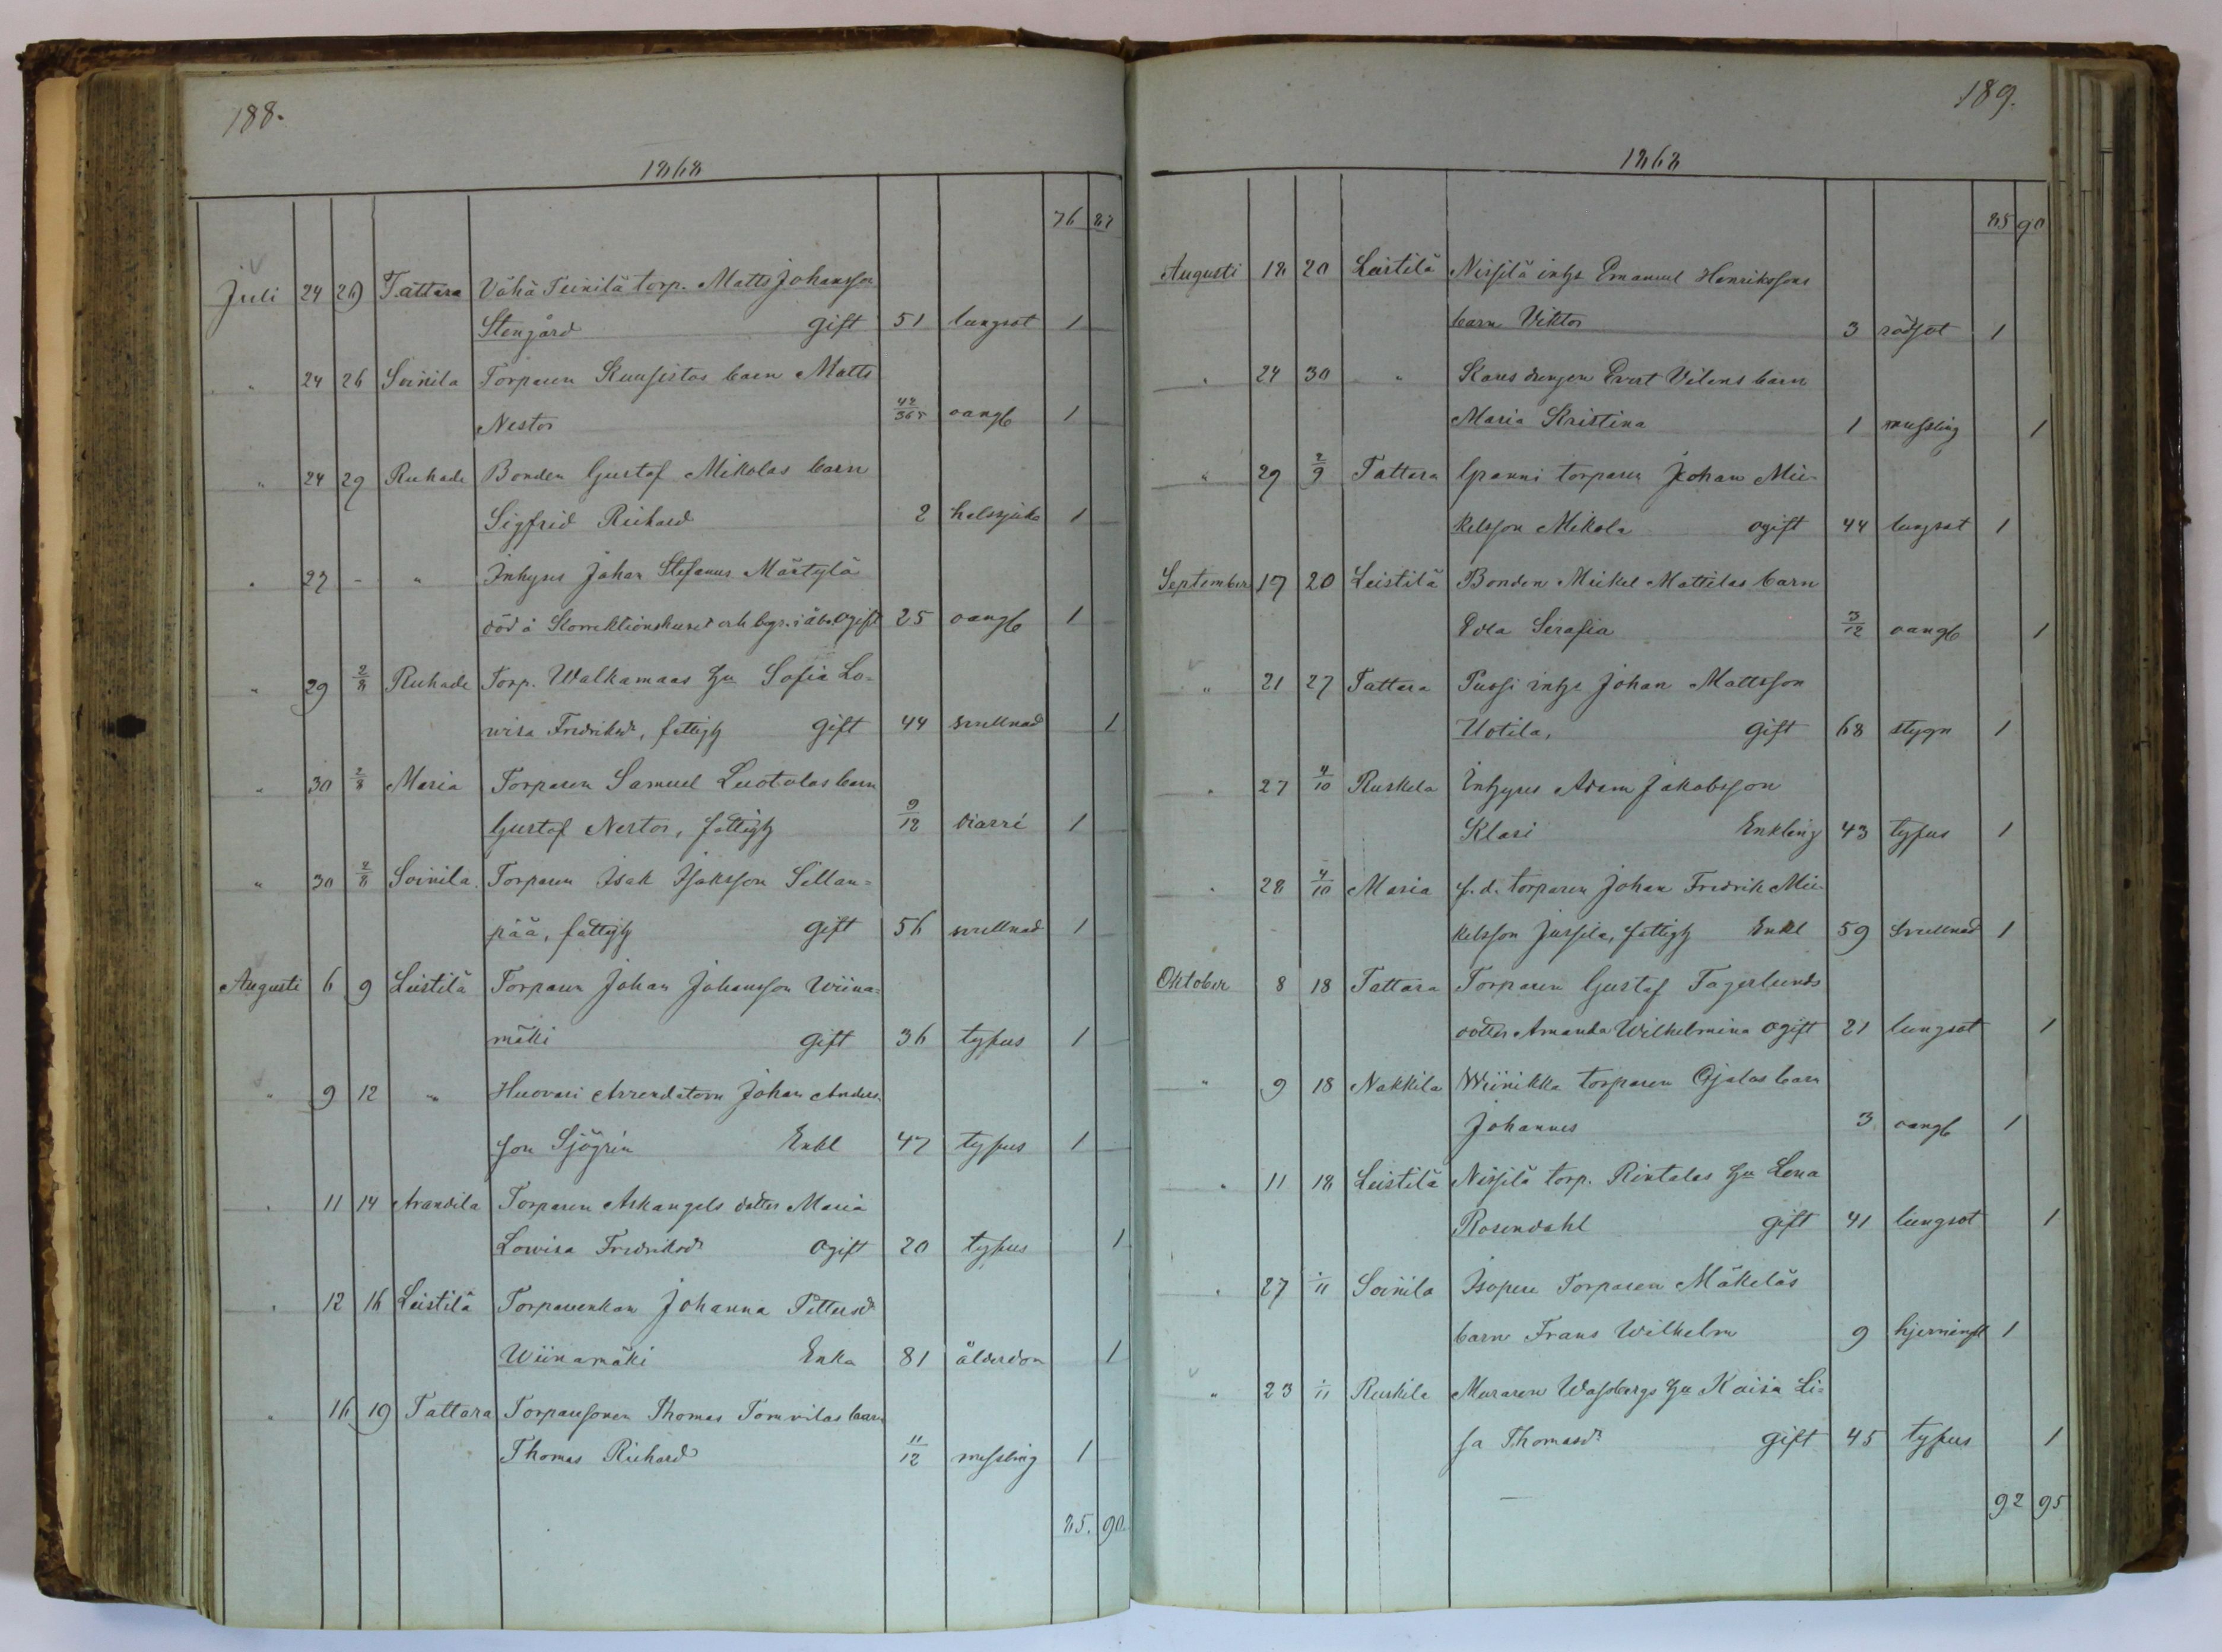 188.
1868
76 87
Juli 24 26 Tattara Vähä Teinilä torp. Matts Johansson
Stengård Gift 51 lungsot 1
" 24 26 Soinila Torparen Kuusistos barn Matts
Nestor 42/365 oangb 1
" 24 29 Ruhade Bonden Gustaf Mikolas barn
Sigfrid Richard 2 halssjuka 1
" 27 - " Inhyses Johan Stefanus Märtylä
död å Korrektionshuset och begr. i Åbo Ogift 25 oangb 1
" 29 2/8 Ruhade Torp. Walkamaas Hu Sofia Lo-
wisa Fredriksdr, fattigh Gift 44 svullnad 1
" 30 2/8 Maria Torparen Samuel Luotolas barn
Gustaf Nestor, fattigh 9/12 diarré 1
" 30 2/8 Soinila Torparen Isak Isaksson Sillan=
pää, fattigh Gift 56 svullnad 1
Augusti 6 9 Leistilä Torparen Johan Johansson Wiina=
mäki Gift 36 tyfus 1
" 9 12 " Huovari Arrendatorn Johan Anders-
son Sjögrén Enkl 47 tyfus 1
" 11 14 Arandila Torparen Arkangels dotter Maria
Lowisa Fredriksdr Ogift 20 tyfus 1
" 12 16 Leistilä Torpareenkan Johanna Pettersd
Wiinamäki Enka 81 ålderdom 1
" 16 19 Tattara Torparesonen Thomas Tomvilas barn
Thomas Richard 11/12 messling 1
85. 90
189.
1868
85 90
Augusti 18 20 Leistilä Nissilä inhys Emanuel Henrikssons
barn Viktor 3 rödsot 1
" 24 30 " Kares drengen Evert Vilens barn
Maria Kristina 1 messling 1
" 29 2/9 Tattara Granni torparen Johan Mi-
kelsson Mikola ogift 44 lungsot 1
September 17 20 Leistilä Bonden Mickel Mattilas barn
Eva Serafia 3/12 oangb 1
" 21 27 Tattara Pussi inhys Johan Mattsson
Uotila, Gift 68 stygn 1
" 27 4/10 Ruskela Inhyses Adam Jakobsson
Klasi Enkling 43 tyfus 1
" 28 4/10 Maria f.d. torparen Johan Fredrik Mi-
kelsson Jussila, fattigh Enkl 59 Svullnad 1
Oktober 8 18 Tattara Torparen Gustaf Fagerlunds
dotter Amanda Wilhelmina ogift 21 lungsot 1
" 9 18 Nakkila Wiinikka torparen Ojalas barn
Johannes 3 oangb 1
" 11 18 Leistilä Nissilä torp. Rintalas Hu Lena
Rosendahl Gift 41 lungsot 1
" 27 1/11 Soinila Isopere Torparen Mäkeläs
barn Frans Wilhelm 9 hjerninfl 1
" 23 1/11 Ruskila Muraren Wassbergs Hu Kaisa Li=
sa Thomasdr Gift 45 tyfus 1
92 95